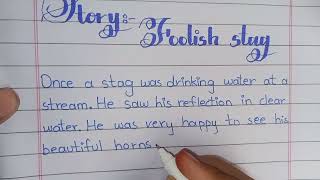 Story:-
Foolish stag
Once a stag was drinking water at a
stream. He saw his reflection in clear
water. He was very happy to see his
beautiful horns.